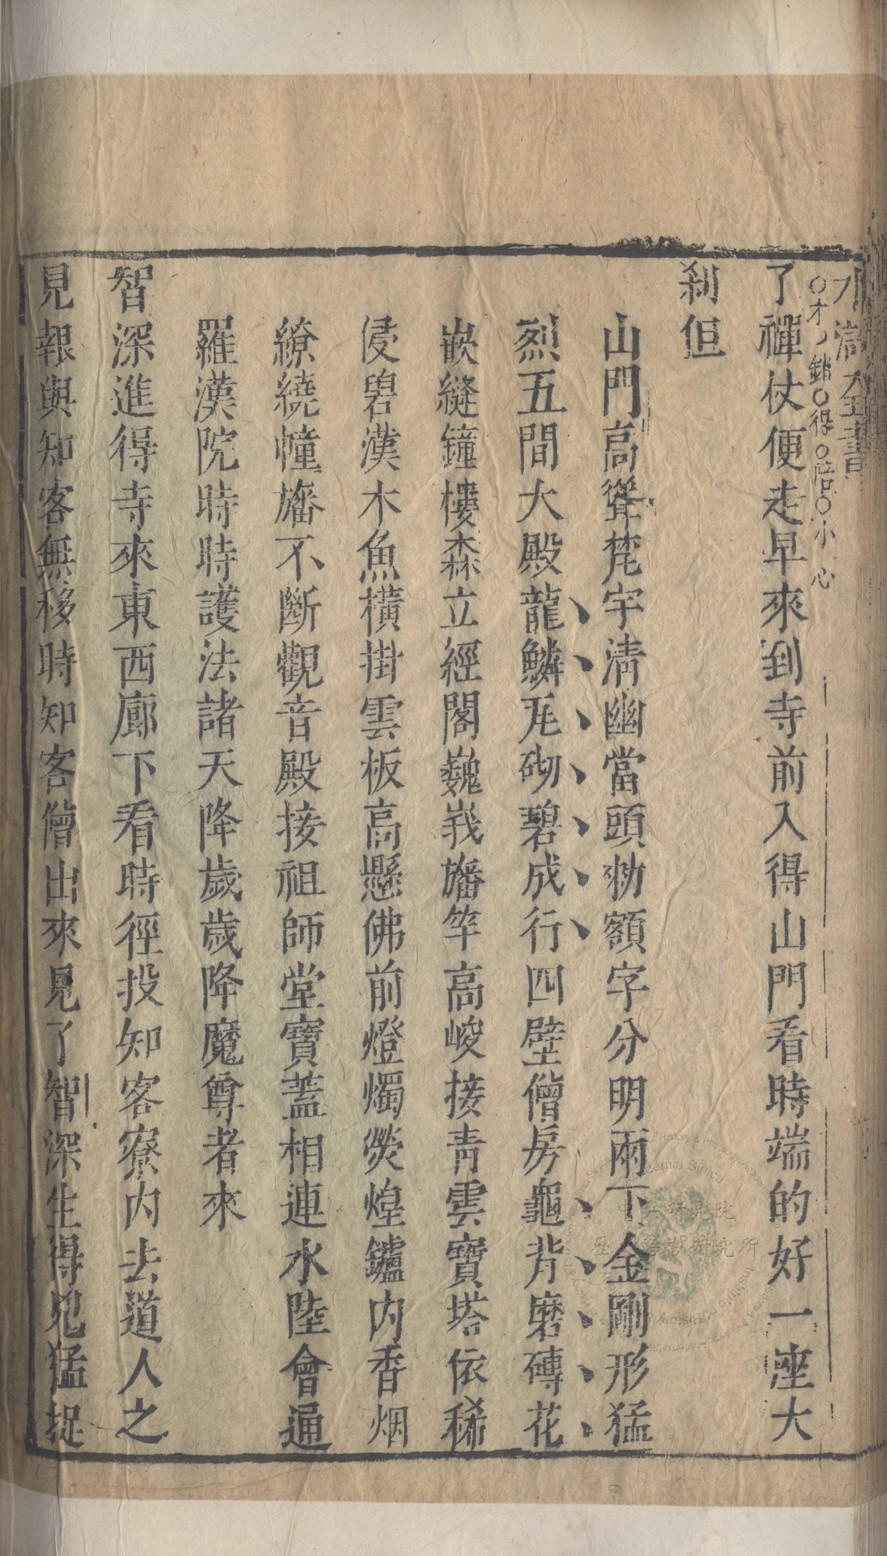 水滸全書
了禪杖便走早來到寺前入得山門看時端的好一座大
刹但
山門高聳梵宇清幽當頭勑額字分明兩下金剛形猛
烈五間大殿龍鱗瓦砌碧成行四壁僧房龜背磨磚花
嵌縫鐘樓森立經閣巍峩旛竿高峻接青雲寶塔依稀
侵碧漢木魚橫掛雲板高懸佛前燈燭熒煌鑪內香烟
繚繞幢旛不斷觀音殿接祖師堂寶蓋相連水陸會通
羅漢院時時護法諸天降歲歲降魔尊者來
智深進得寺來東西廊下看時徑投知客寮內去道人之
見報與知客無移時知客僧出來見了智深生得兇猛捉